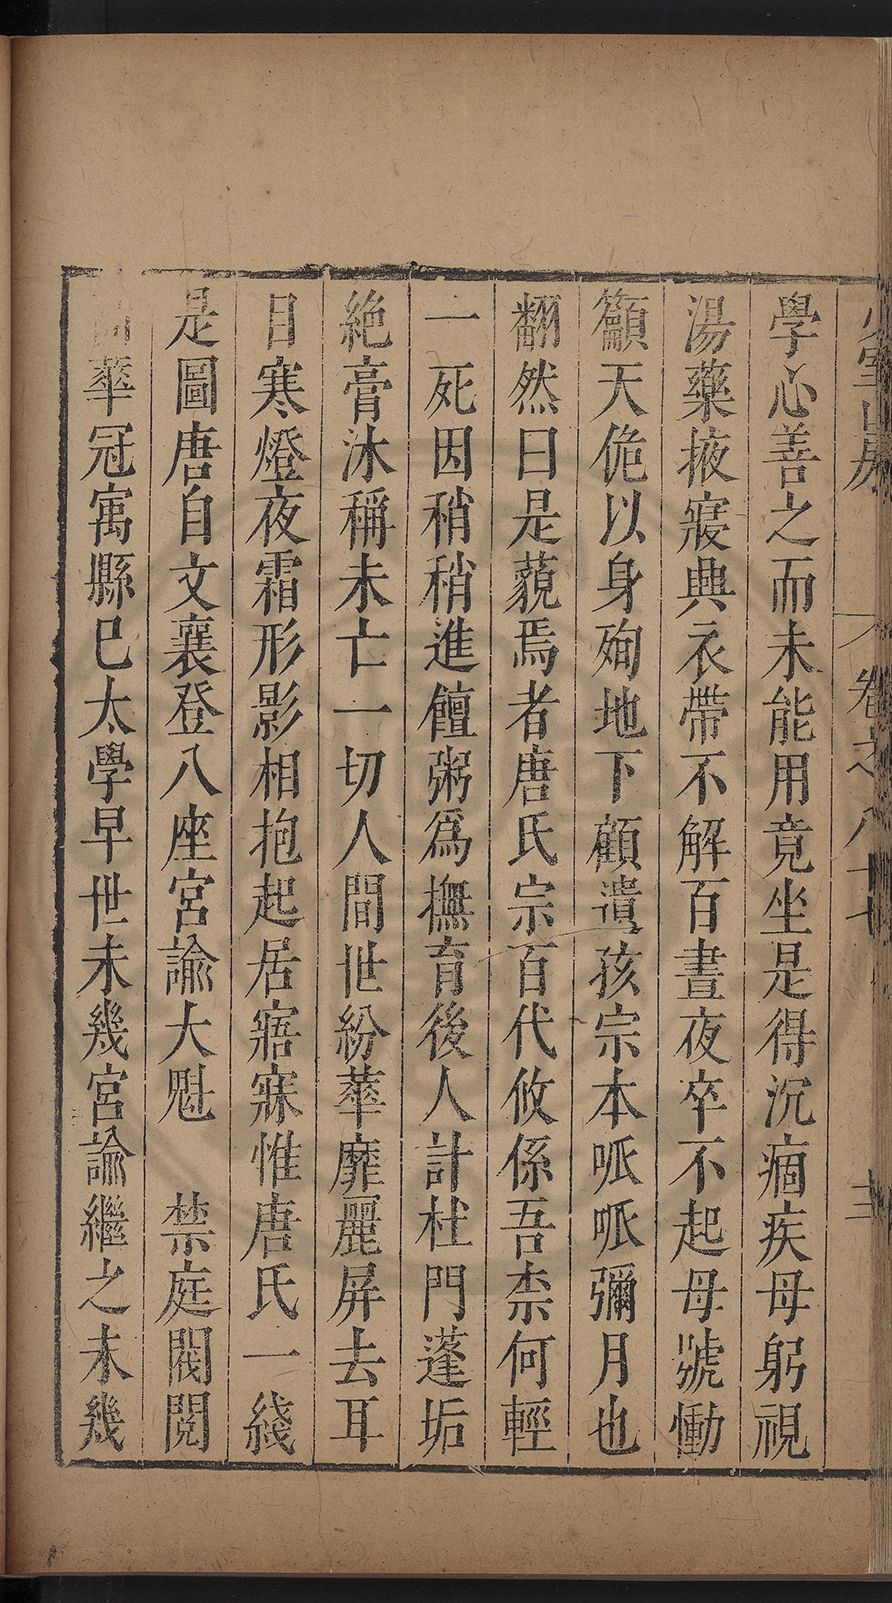 少室山房 卷之八十七 十三
學心善之而未能用竟坐是得沉痼疾母躬視
湯藥掖寢興衣帶不解百晝夜卒不起母號慟
籲天佹以身殉地下顧遺孩宗本呱呱彌月也
翻然曰是藐焉者唐氏宗百代攸係吾柰何輕
一死因稍稍進饘粥爲撫育後人計杜門蓬垢
絶膏沐稱未亡一切人間世紛華靡麗屏去耳
目寒燈夜霜形影相抱起居寤寐惟唐氏一綫
是圖唐自文襄登八座宮諭大魁 禁庭閥閱
華冠寓縣巳太學早世未幾宮諭繼之未幾